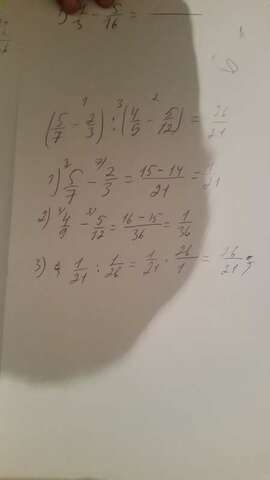 (5/7 - 2/3) : (4/9 - 5/12) = 26/21
1) 5/7 - 2/3 = 15-14/21 = 1/21
2) 4/9 - 5/12 = 16-15/36 = 1/36
3) 1/21 : 1/26 = 1/21 · 26/1 = 26/21